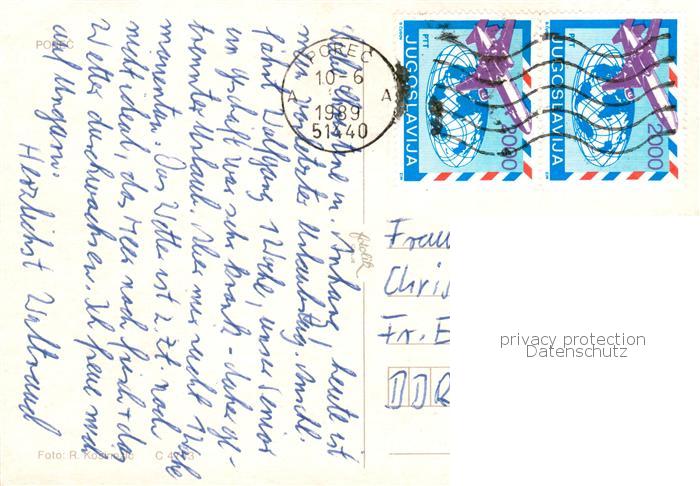 POREČ
heute ist
mein letzter Urlaubstag. Anschl.
fährt Wolfgang 1 Woche, unser Senior
im Geschäft war sehr krank - daher ge-
trennter Urlaub. Aber mir reicht 1 Woche
momentan. Das Wetter ist z. Zt. noch
nicht ideal, das Meer noch frisch + das
Wetter durchwachsen. Ich freue mich
auf Ungarn.
Herzlichst Waltraud
Foto: R. C 4
POREČ
10-6
1989
51440
A A
PTT
JUGOSLAVIJA
2000
PTT
JUGOSLAVIJA
2000
Frau
Chris
Fr. E
DDR
privacy protection
Datenschutz